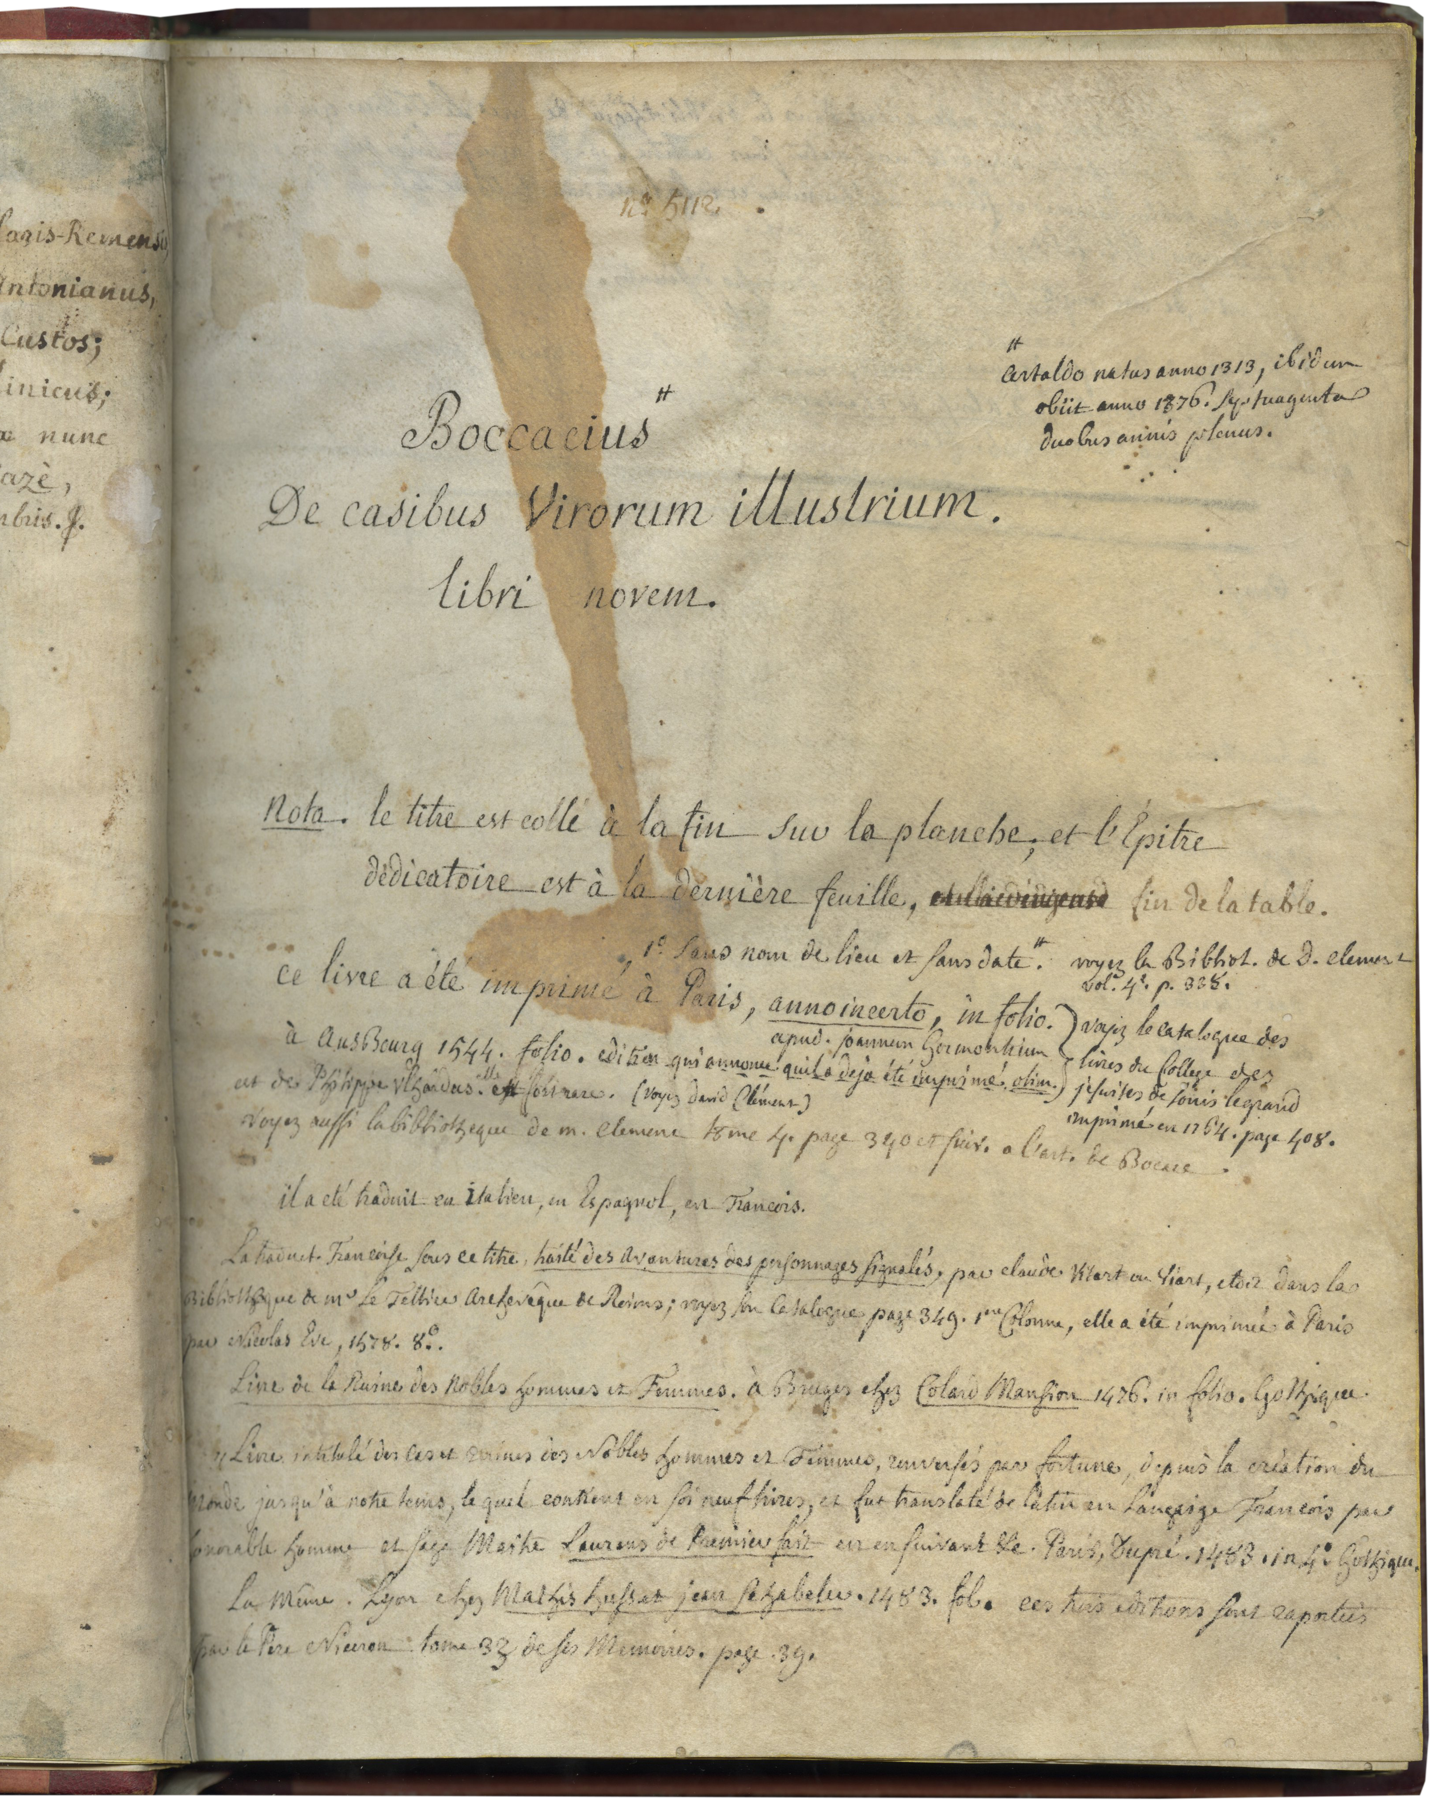 Paris-Remensis
Antonianus,
Custos;
linicus;
nunc
azè,
mbris. f.
no. 5112.
#
Certaldo natus anno 1313, ibidem
obiit anno 1376. septuaginta
duobus annis plenus.
Boccacius #
De casibus Virorum illustrium.
libri novem.
Nota. le titre est collé à la fin sur la planche, et l'Épitre
dédicatoire est à la dernière feuille, fin de la table.
1o. sans nom de lieu et sans date. # voyez la Bibliot. de D. clement
vol. 4e. p. 328.
ce livre a été imprimé à Paris, anno incerto, in folio.
apud. joannem Gormontium
à Ausbourg 1544. folio. edition qui annonce qu'il a deja été imprimé, olim.
voyez le catalogue des
livres du College des
jesuites de Louis legrand
imprimé en 1764. page 408.
est de Philippe Ulhardus. elle est fort rare. (voyez David Clément)
voyez aussi la bibliotheque de m. clement tome 4. page 340 et suiv. a l'art. de Bocace.
il a eté traduit en italien, en Espagnol, en Francois.
La traduct. Francoise sous ce titre, traité des avantures des personnages signalés, par claude Witart ou Viart, etoit dans la
Bibliotheque de mr Le Tellier Archevêque de Reims; voyez son Catalogue page 349. 1ere Colonne, elle a été imprimée à Paris
par Nicolas Eve, 1578. 8o.
Livre de la Ruine des Nobles hommes et Femmes. à Bruges chez Colard Mansion 1476. in folio. Gothique.
Livre intitulé des cas et ruines des Nobles hommes et Femmes, renversés par fortune, depuis la création du
Monde jusqu'à notre tems, lequel contient en soi neuf livres, et fut translaté de latin en Langaige Francois par
honorable homme et sage Maitre Laurens de Premier fait en ensuivant &c. Paris, Dupré. 1483. in 4o Gothique.
La Même. Lyon chez Mathis hussar jean schabeler. 1483. fol. ces trois editions sont raportées
par le Pere Niceron tome 33 de ses Memoires. page. 39.